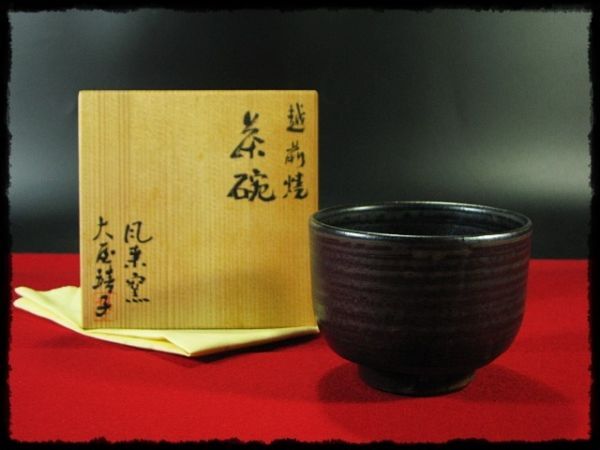 越前焼
茶碗
風来窯
大屋靖子